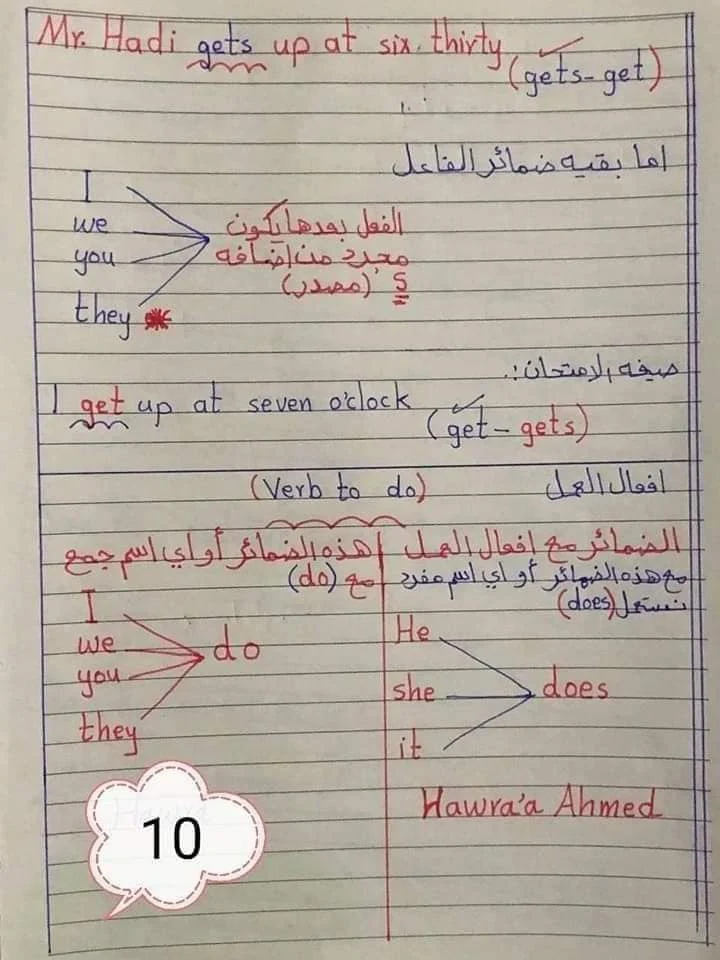 Mr. Hadi gets up at six thirty
(gets - get)
اما بقيه ضمائر الفاعل
I
we
you
they
الفعل بعدها يكون
مجرد من اضافه
s (مصدر)
صيغه الامتحان:.
I get up at seven o'clock
(get - gets)
افعال العمل (Verb to do)
الضمائر مع افعال العمل
مع هذه الضمائر أو اي اسم مفرد
نستعمل (does)
He
she
it
does
هذه الضمائر أو اي اسم جمع
مع (do)
I
we
you
they
do
Hawra'a Ahmed
10